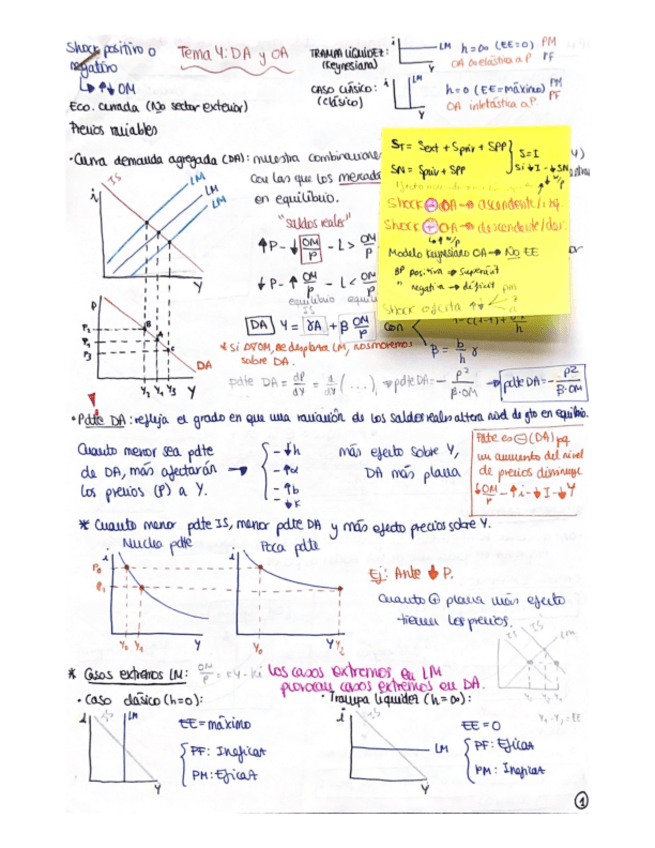 Shock positivo o
negativo
↳ ↑↓ OM
Tema 4: DA y OA
TRAMPA LIQUIDEZ:
(Keynesiana)
i
LM
Y
h=∞ (EE=0) PM
PF
CASO CLÁSICO:
(Clásico)
i
LM
Y
h=0 (EE=máximo) PM
PF
OA inelástica a P.
Eco. cerrada (No sector exterior)
Precios variables
• Curva demanda agregada (DA): muestra combinaciones
con las que los mercad
en equilibrio.
"saldos reales"
↑P - ↓ OM/P - L > OM/P
↓P - ↑ OM/P - L < OM/P
equilibrio
DA Y = γA + β OM/P
con
β = b/h γ
* Si ↑OM, se desplaza LM, nos movemos
sobre DA.
pdte DA = dP/dY = 1/dY (...), → pdte DA = - P²/β·OM → pdte DA = - P²/β·OM
i
IS
LM
LM
LM
Y
P
P₂
P₁
P₃
B
A
C
DA
Y₂ Y₁ Y₃ Y
ST = Sext + Spriv + SPP
SN = Spriv + SPP
S=I
Si ↓I - ↓SN
Shock ⊖ OA → ascendente/izq.
Shock ⊕ OA → descendente/der.
↳ ↑ w/p
Modelo Keynesiano OA → No EE
BP positiva → superávit
" negativa → déficit
Shock oferta
• Pdte DA: refleja el grado en que una variación de los saldos reales altera nivel de gto en equilibrio.
Cuanto menor sea pdte
de DA, más afectarán →
los precios (P) a Y.
- ↓h
- ↑α
- ↑b
- ↓k
más efecto sobre Y,
DA más plana
Pdte es ⊖ (DA) pq
un aumento del nivel
de precios disminuye
↓ OM/P - ↑i - ↓I - ↓Y
* Cuanto menor pdte IS, menor pdte DA y más efecto precios sobre Y.
Mucha pdte
Poca pdte
i
P₀
P₁
Y₀ Y₁ Y
i
Y₀ Y Y₂
Ej: Ante ↓ P.
Cuanto ⊕ plana más efecto
tienen los precios.
IS
IS
LM
* Casos extremos LM: OM/P = kY - hi
Los casos extremos en LM
provocan casos extremos en DA.
• Caso clásico (h=0):
i
IS
LM
Y
EE = máximo
PF: Ineficaz
PM: Eficaz
• Trampa liquidez (h=∞):
i
IS
LM
Y
EE = 0
PF: Eficaz
PM: Ineficaz
1